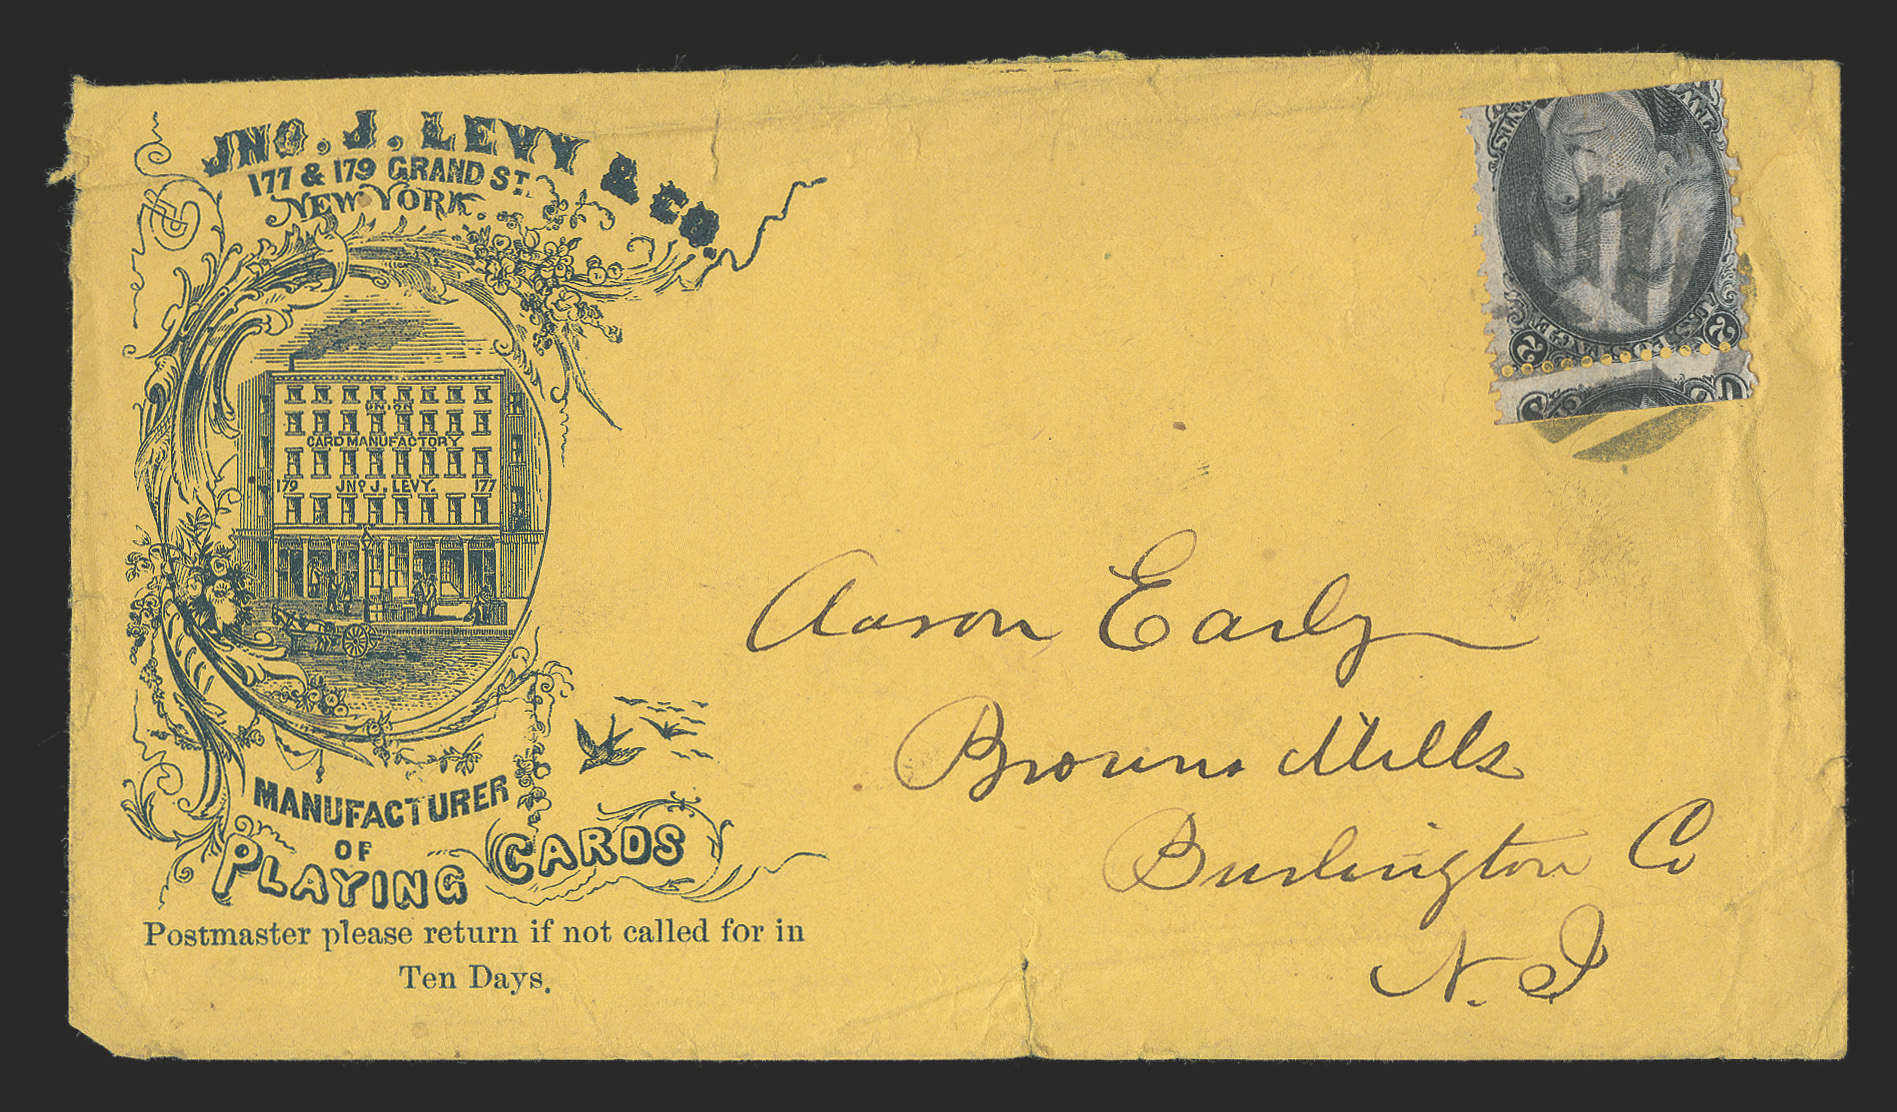 JNO. J. LEVY & CO.
177 & 179 GRAND ST.
NEW YORK.
UNION
CARD MANUFACTORY
179 JNO J. LEVY. 177
MANUFACTURER
OF
PLAYING CARDS
Postmaster please return if not called for in
Ten Days.
Aaron Early
Browns Mills
Burlington Co
N. J
2 2